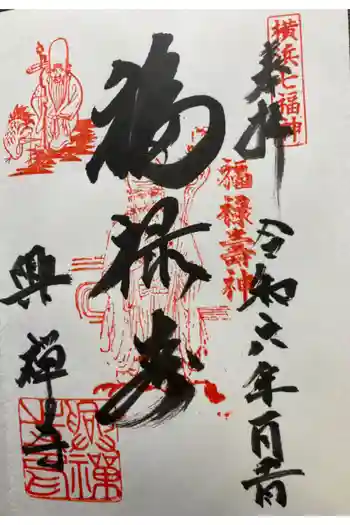 横浜七福神
奉拝
令和六年一月一日
福禄寿神
福禄寿
興禅寺